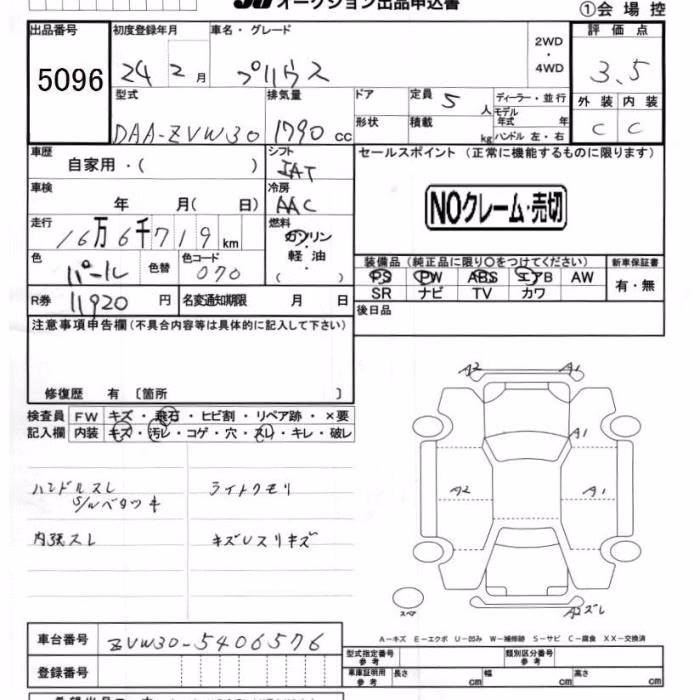 オークション出品申込書
①会場控
出品番号 初度登録年月 車名・グレード 2WD・4WD 評価点
5096 24年 2月 プリウス 3.5
型式 排気量 ドア 定員 5人 ディーラー・並行 外装 内装
DAA-ZVW30 1790cc 形状 積載 kg モデル年式 年 ハンドル 左・右 C C
車歴 シフト セールスポイント (正常に機能するものに限ります)
自家用・( ) IAT
車検 冷房
年 月( 日) AAC NOクレーム・売切
走行 燃料
16万6千719km ガソリン・軽油・( )
色 色替 色コード 装備品(純正品に限り○をつけてください) 新車保証書
パール 070 PS PW ABS エアB AW 有・無
SR ナビ TV カワ
R券 11920円 名変通知期限 月 日 後日品
注意事項申告欄(不具合内容等は具体的に記入して下さい)
修復歴 有 〔箇所 〕
検査員 FW キズ・飛石・ヒビ割・リペア跡・×要
記入欄 内装 キズ・汚レ・コゲ・穴・スレ・キレ・破レ
ハンドルスレ ライトクモリ
S/Wベタツキ
内張スレ キズUスリキズ
A2 A1
A1
A2 A1
スペア A2ズレ
A-キズ E-エクボ U-凹み W-補修跡 S-サビ C-腐食 XX-交換済
車台番号 ZVW30-5406576
型式指定番号 参考 類別区分番号 参考
登録番号 車庫証明用 参考 長さ cm 幅 cm 高さ cm